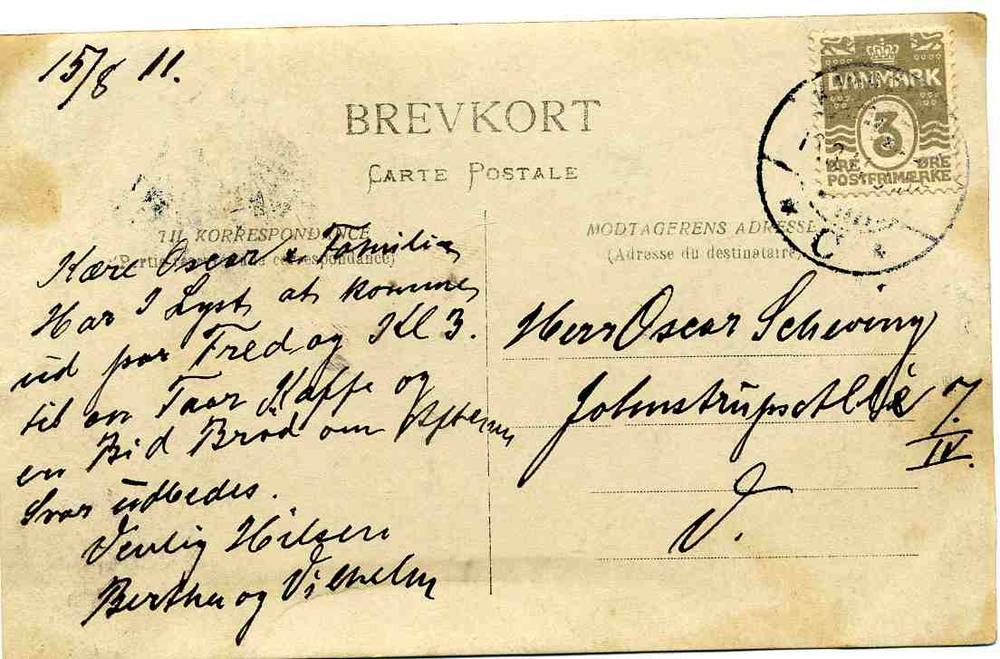 15/8 11.
BREVKORT
CARTE POSTALE
TIL KORRESPONDANCE
(Partie réservée à la correspondance)
Kære Oscar & Familie
Har I Lyst at komme
ud paa Fredag Kl 3.
til en Taar Kaffe og
en Bid Brød om Aftenen
Svar udbedes.
Venlig Hilsen
Bertha og Vilhelm
DANMARK
3
ØRE ØRE
POSTFRIMÆRKE
MODTAGERENS ADRESSE
(Adresse du destinataire)
Herr Oscar Schwing
Johnstrups Allé 7.
IV.
V.